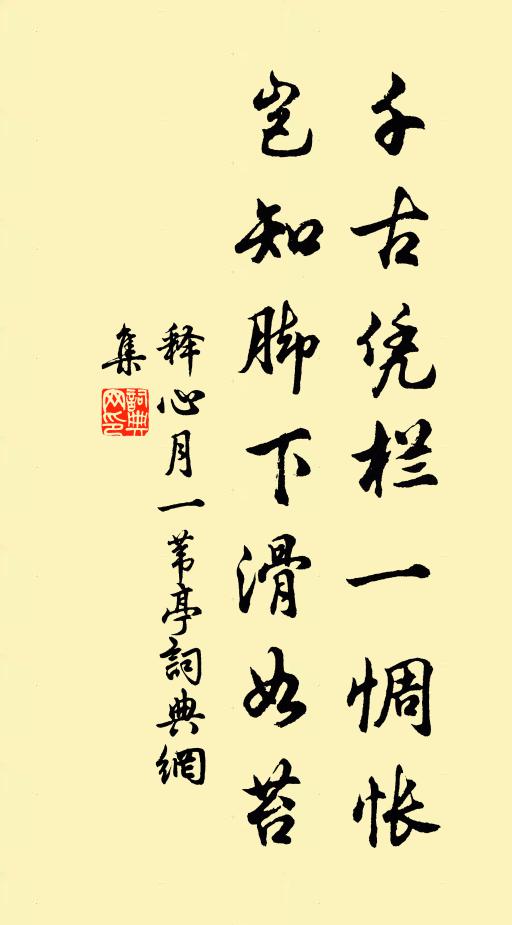 千古凭栏一惆怅
岂知脚下滑如苔
释心月一苇亭詞典網
集
詞典網印